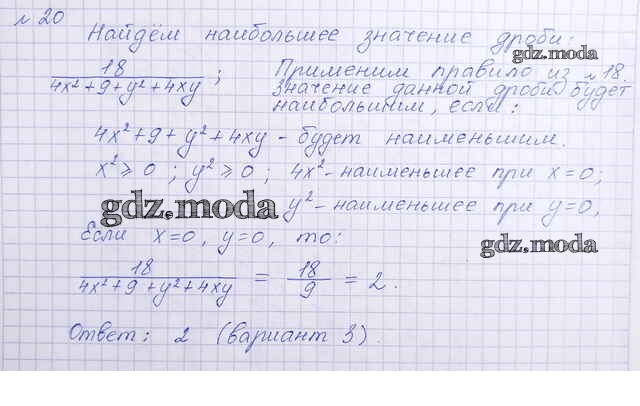 № 20
Найдём наибольшее значение дроби:
gdz.moda
18
4x²+9+y²+4xy ; Применим правило из №18.
Значение данной дроби будет
наибольшим, если:
4x²+9+y²+4xy - будет наименьшим.
x²⩾0 ; y²⩾0 ; 4x²- наименьшее при x=0;
gdz.moda y²- наименьшее при y=0,
Если x=0, y=0, то:
gdz.moda
18 / 4x²+9+y²+4xy = 18 / 9 = 2.
Ответ: 2 (вариант 3).